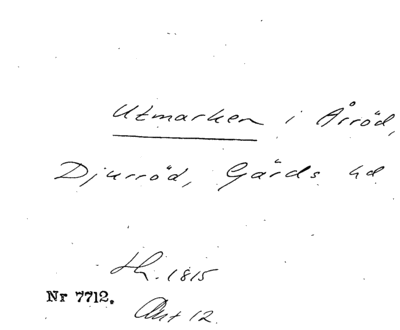 Utmarken i Årröd,
Djurröd, Gärds hd
Sk. 1815
Nr 7712.
Akt 12.